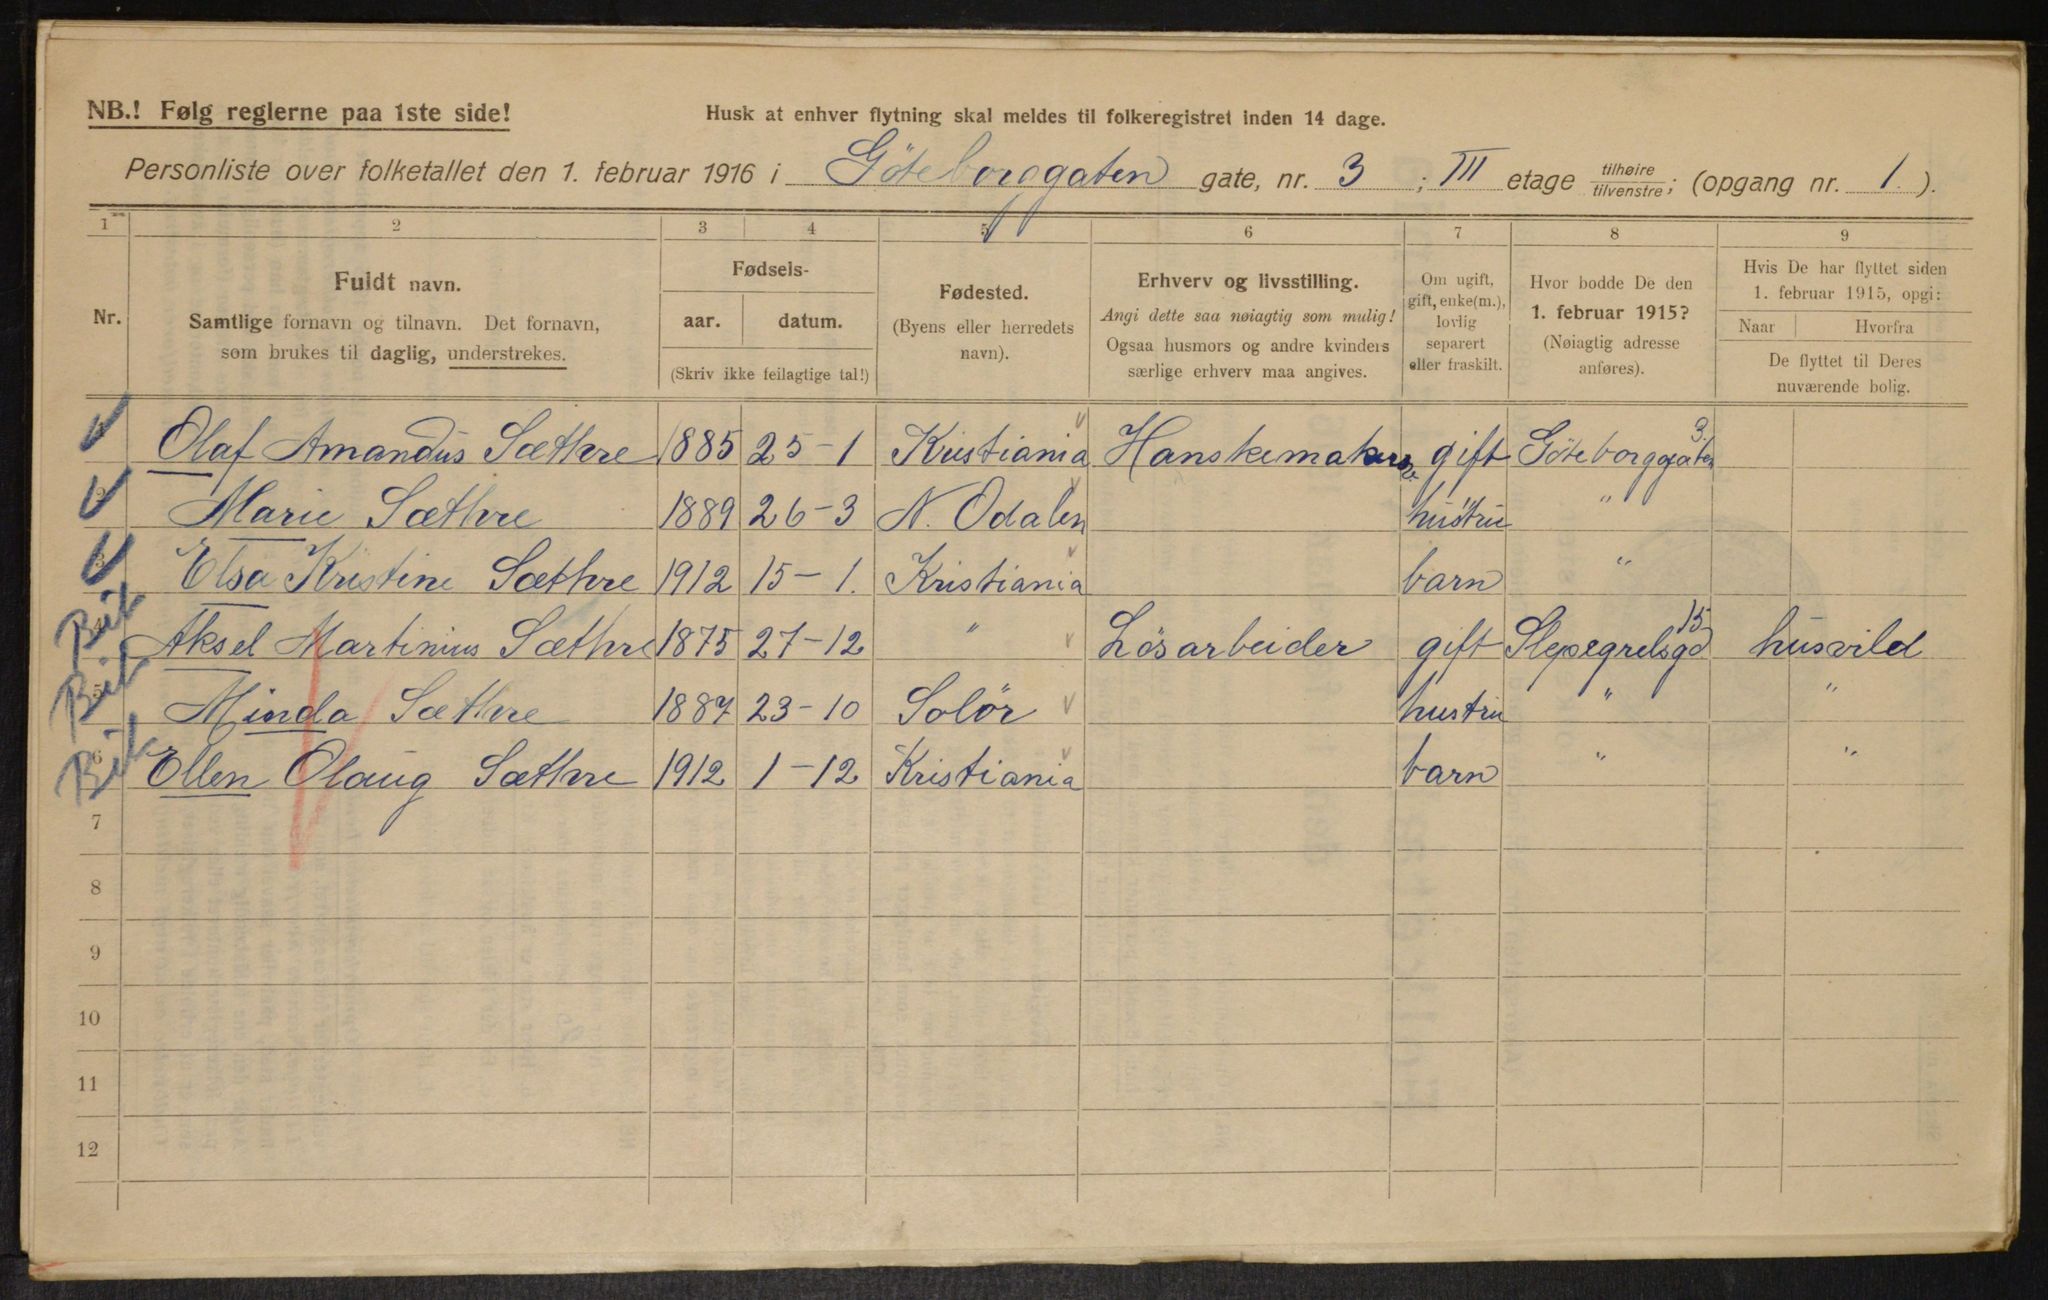 NB.! Følg reglerne paa 1ste side!
Husk at enhver flytning skal meldes til folkeregistret inden 14 dage.
Personliste over folketallet den 1. februar 1916 i Göteborggaten gate, nr. 3 ; III etage tilhøire tilvenstre ; (opgang nr. 1. ).
1 2 3 4 5 6 7 8 9
Nr.
Fuldt navn.
Samtlige fornavn og tilnavn. Det fornavn,
som brukes til daglig, understrekes.
Fødsels-
aar. datum.
(Skriv ikke feilagtige tal!)
Fødested.
(Byens eller herredets
navn).
Erhverv og livsstilling.
Angi dette saa nøiagtig som mulig!
Ogsaa husmors og andre kvinders
særlige erhverv maa angives.
Om ugift,
gift, enke(m.),
lovlig
separert
eller fraskilt.
Hvor bodde De den
1. februar 1915?
(Nøiagtig adresse
anføres).
Hvis De har flyttet siden
1. februar 1915, opgi:
Naar Hvorfra
De flyttet til Deres
nuværende bolig.
Olaf Amandus Sæthre 1885 25-1 Kristiania Hanskemaker gift Göteborggaten 3.
Marie Sæthre 1889 26-3 N. Odalen hustru "
Elsa Kristine Sæthre 1912 15-1. Kristiania barn "
Aksel Martinius Sæthre 1875 27-12 " Lösarbeider gift Slepegrelsgd 15 husvild
5 Minda Sæthre 1887 23-10 Solör hustru " "
6 Ellen Olaug Sæthre 1912 1-12 Kristiania barn " "
7
8
9
10
11
12